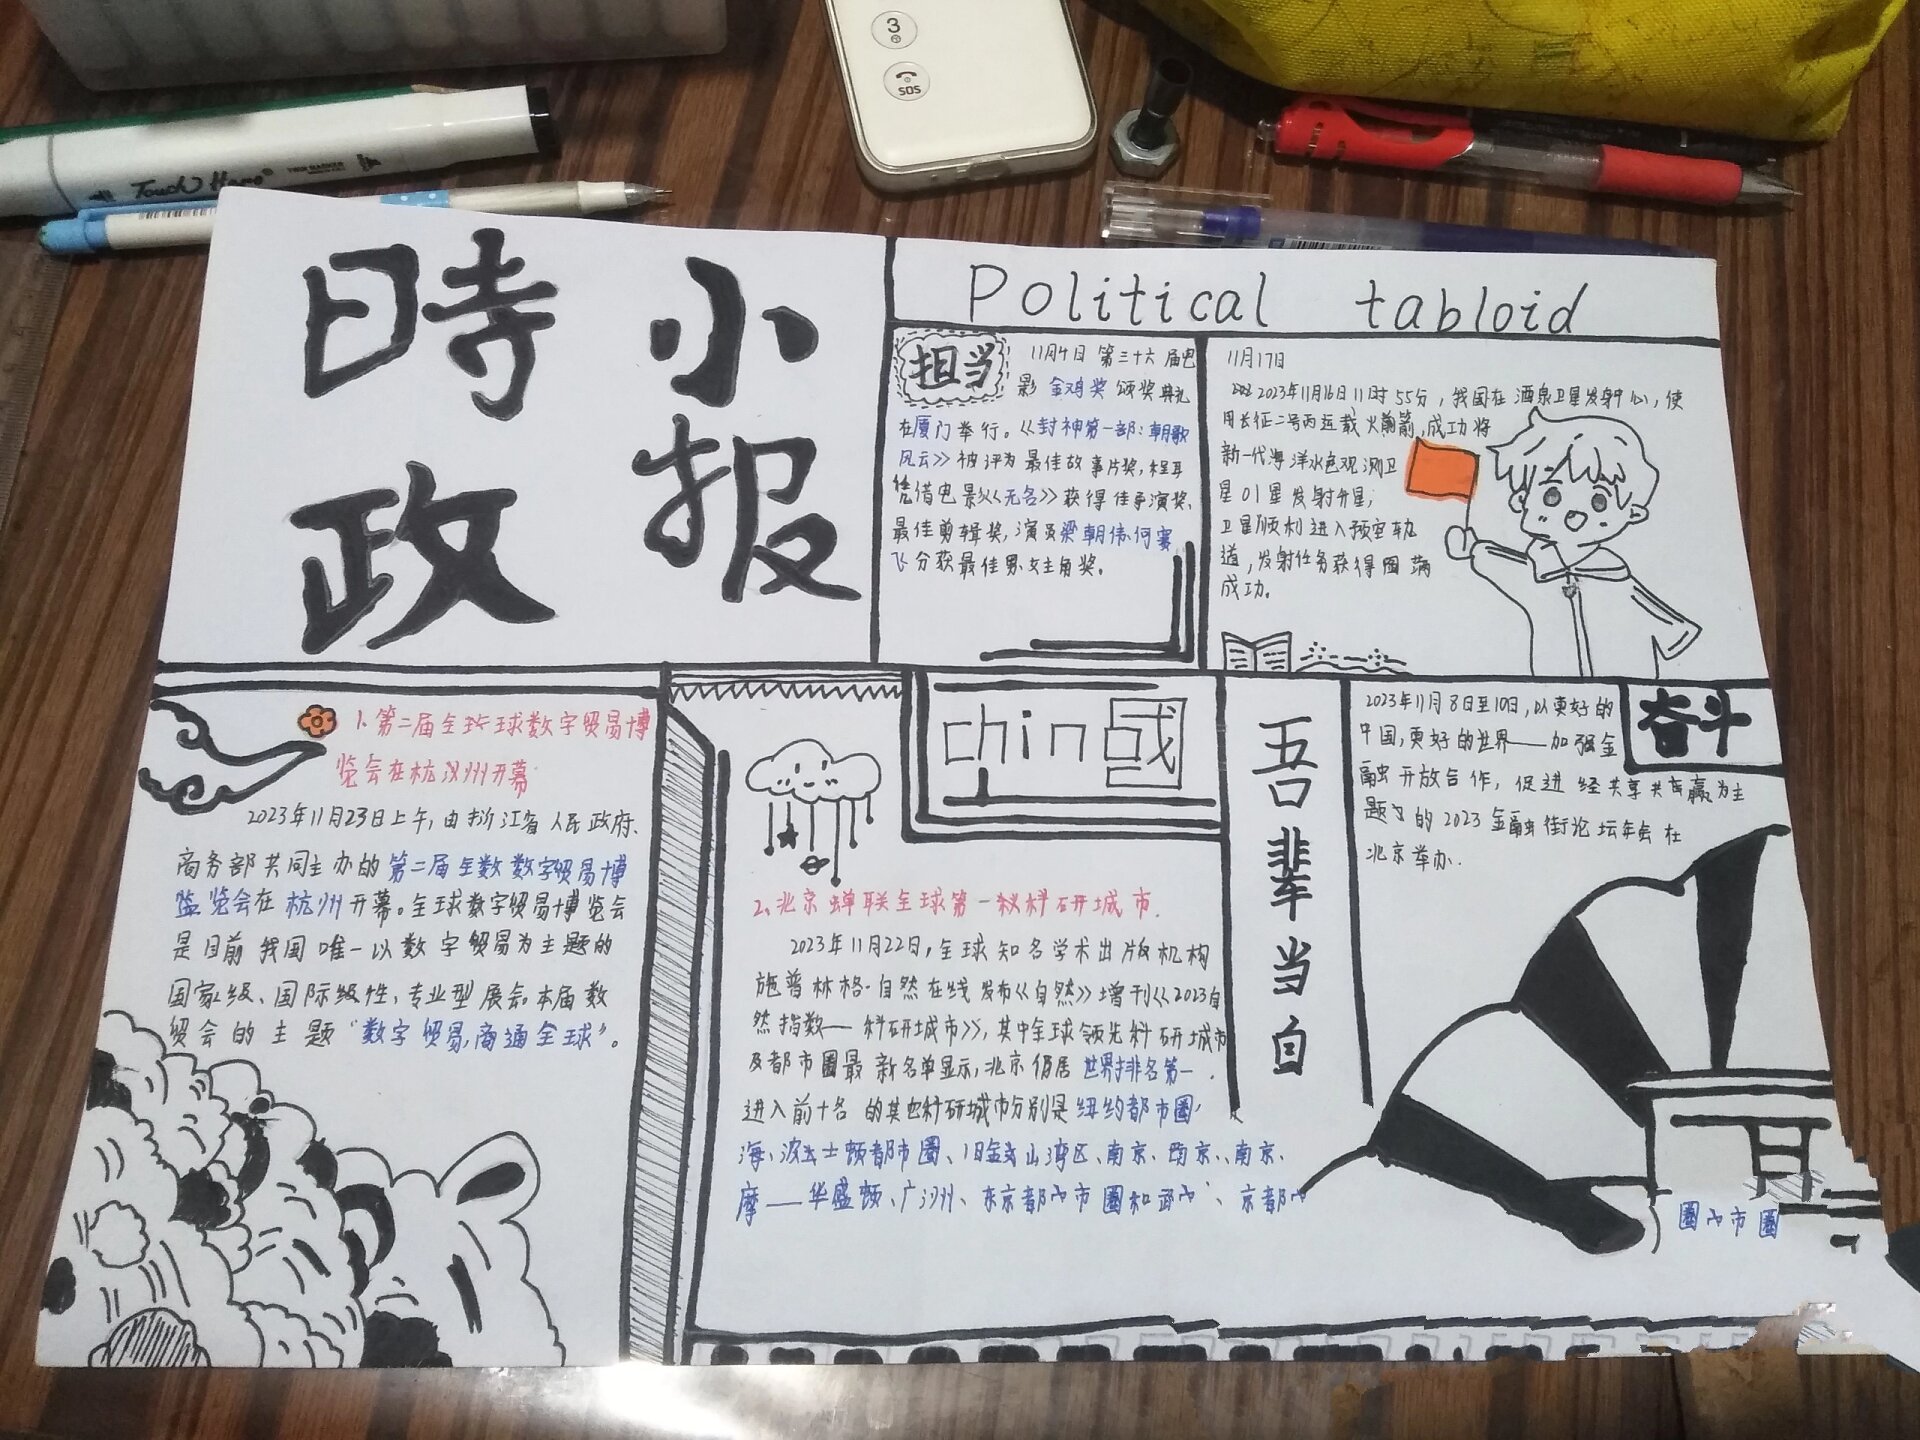 3
SOS
Touch
時政
小报
Political tabloid
担当
11月4日 第三十六届电
影 金鸡奖 颁奖典礼
在厦门举行。《封神第一部:朝歌
风云》被评为最佳故事片奖,程耳
凭借电影《无名》获得佳导演奖、
最佳剪辑奖,演员梁朝伟、何赛
飞分获最佳男、女主角奖。
11月17日
2023年11月16日11时55分,我国在酒泉卫星发射中心,使
用长征二号丙运载火箭,成功将
新一代海洋水色观测卫
星01星发射升星;
卫星顺利进入预定轨
道,发射任务获得圆满
成功。
1、第二届全球数字贸易博
览会在杭州开幕
2023年11月23日上午,由浙江省人民政府、
商务部共同主办的第二届全数数字贸易博
览会在杭州开幕。全球数字贸易博览会
是目前我国唯一以数字贸易为主题的
国家级、国际级性、专业型展会。本届数
贸会的主题“数字贸易,商通全球”。
chin國
2、北京蝉联全球第一科研城市.
2023年11月22日,全球知名学术出版机构
施普林格·自然在线发布《自然》增刊《2023自
然指数——科研城市》,其中全球领先科研城市
及都市圈最新名单显示,北京仍居世界排名第一.
进入前十名的其他科研城市分别是纽约都市圈、
海、波士顿都市圈、旧金山湾区、南京、南京、
摩——华盛顿、广州、东京都市圈和武、京都
圈市圈
吾辈当自
奋斗
2023年11月8日至10日,以更好的
中国,更好的世界——加强金
融开放合作,促进经共享共赢为主
题的2023金融街论坛年会在
北京举办.